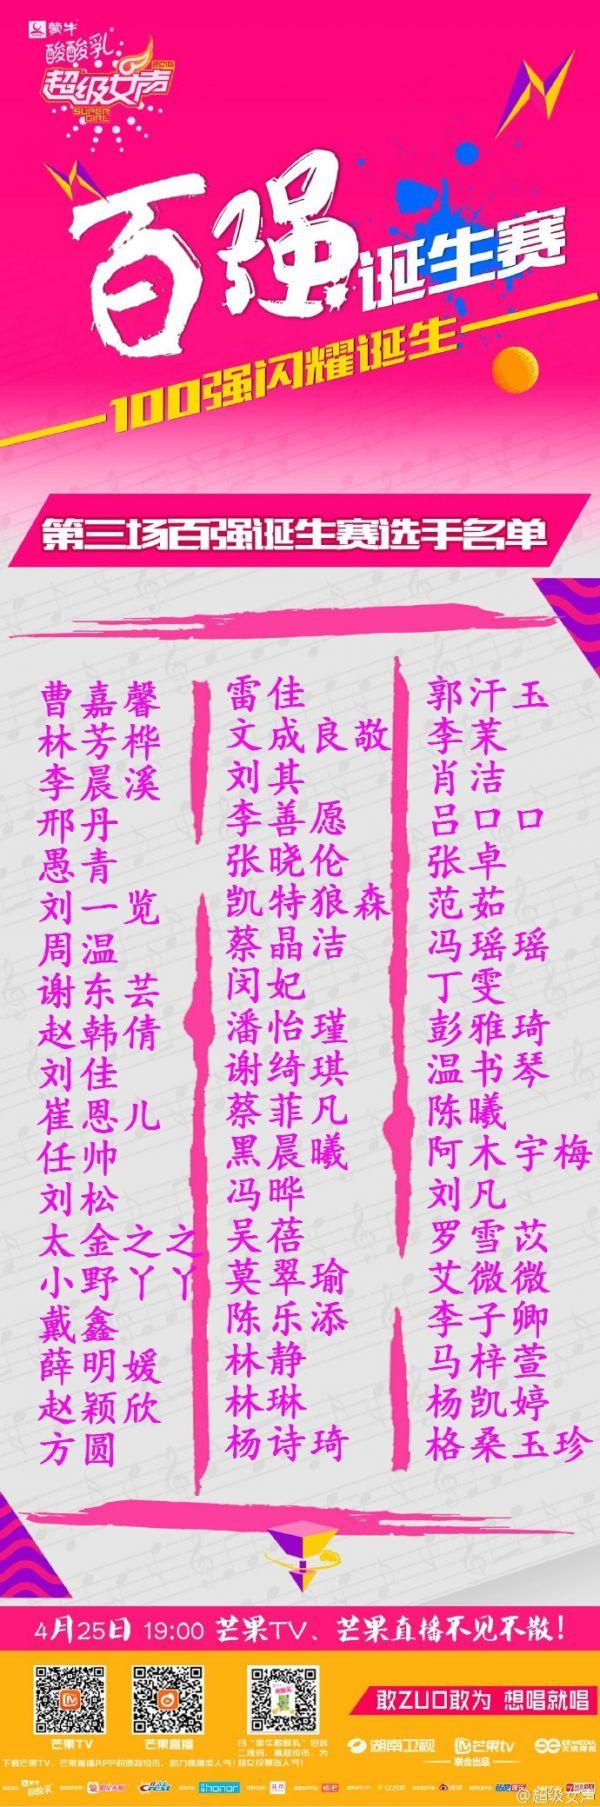 蒙牛
酸酸乳
2016
超级女声
SUPER
GIRL
百强诞生赛
100强闪耀诞生
第三场百强诞生赛选手名单
曹嘉馨
林芳桦
李晨溪
邢丹
愚青
刘一览
周温
谢东芸
赵韩倩
刘佳
崔恩儿
任帅
刘松
太金之之
小野丫丫
戴鑫
薛明媛
赵颖欣
方圆
雷佳
文成良敬
刘其
李善愿
张晓伦
凯特狼森
蔡晶洁
闵妃
潘怡瑾
谢绮琪
蔡菲凡
黑晨曦
冯晔
吴蓓
莫翠瑜
陈乐添
林静
林琳
杨诗琦
郭汗玉
李茉
肖洁
吕口口
张卓
范茹
冯瑶瑶
丁雯
彭雅琦
温书琴
陈曦
阿木宇梅
刘凡
罗雪苡
艾微微
李子卿
马梓萱
杨凯婷
格桑玉珍
4月25日 19:00 芒果TV、芒果直播不见不散！
芒果TV
芒果直播
扫“蒙牛酸酸乳”包装
二维码，赢超级币，为
下载芒果TV、芒果直播APP抢攒超级币，助力偶像添人气！超女投票涨人气！
敢ZUO敢为 想唱就唱
湖南卫视
芒果tv
EE-MEDIA
天娱传媒
联合出品
蒙牛
酸酸乳
Crest
honor
@超级女声